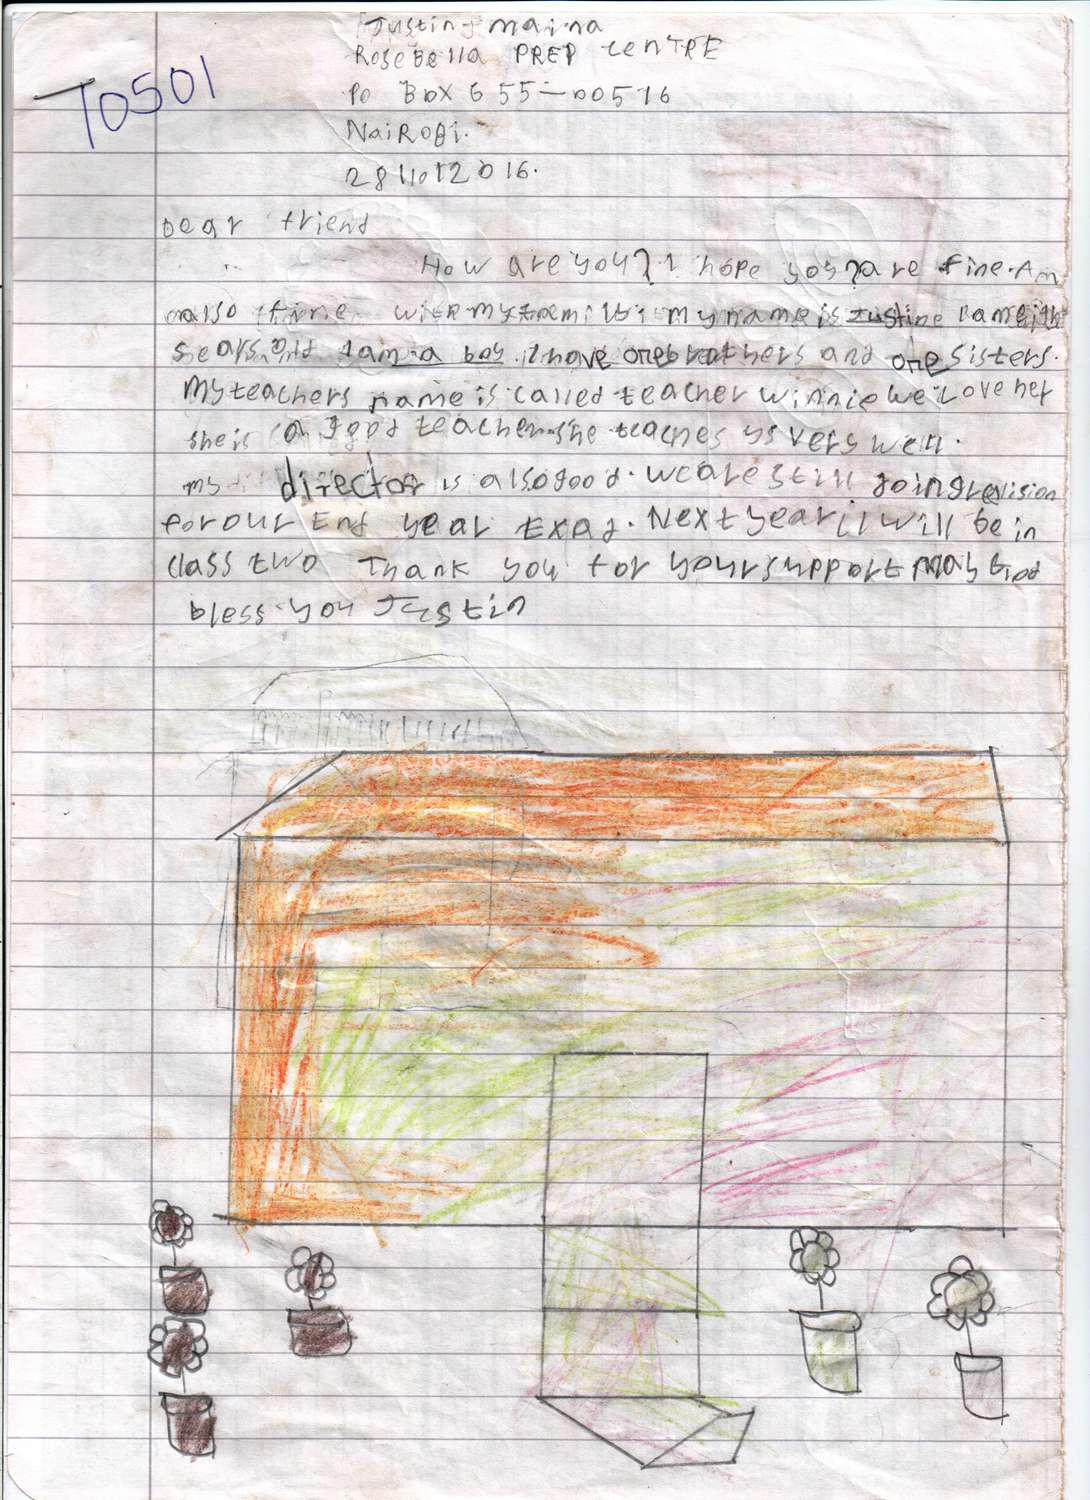 Justin maina
Rosebella PREP CenTRE
T0501
Po Box 655-00516
NaiRoBi.
28/10/2016.
Dear friend
How are you? I hope you?are fine.Am
also fine with my family my name is Justine I am
years old I am a boy. I have one brothers and one sisters.
My teachers name is called teacher Winnie we Love her
she is a good teacher.she teaches us very well.
my director is also good. we are still going revision
for our End year Exaz. Next year i will be in
class two Thank you for your support may God
bless you Justin